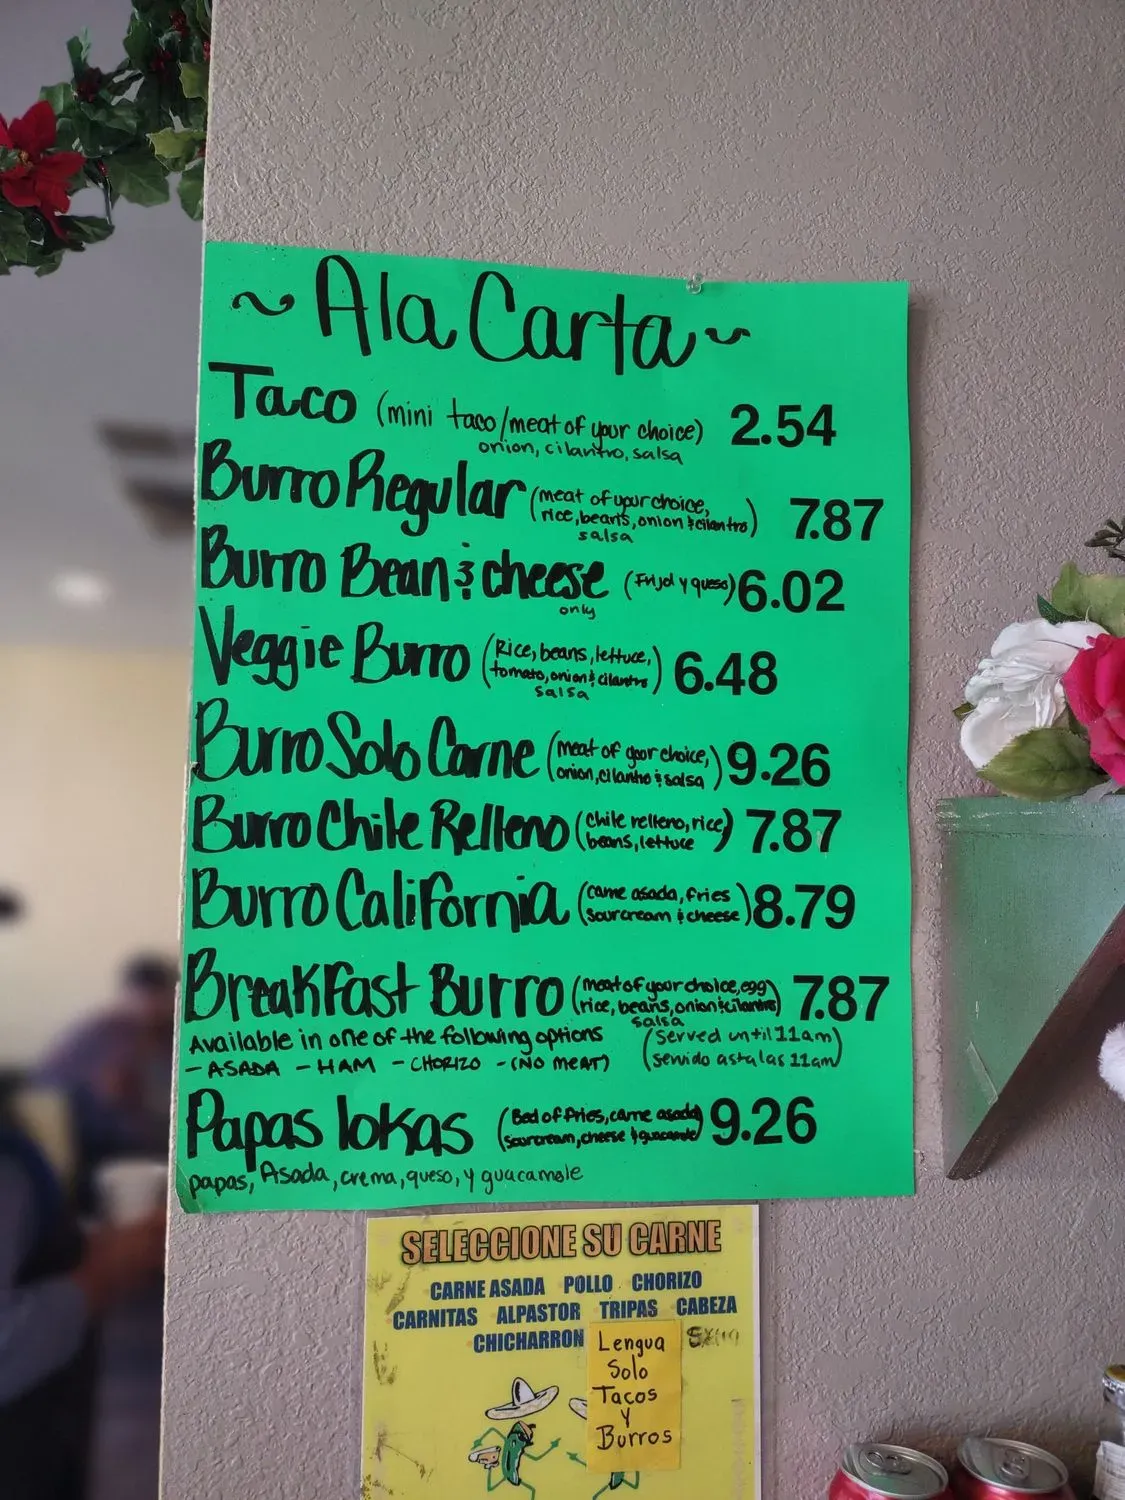 ~ Ala Carta ~
Taco (mini taco/meat of your choice) 2.54
onion, cilantro, salsa
Burro Regular (meat of your choice, 7.87
rice, beans, onion & cilantro)
salsa
Burro Bean & cheese (Frijol y queso) 6.02
only
Veggie Burro (Rice, beans, lettuce, 6.48
tomato, onion & cilantro)
salsa
Burro Solo Carne (meat of your choice, 9.26
onion, cilantro & salsa)
Burro Chile Relleno (chile relleno, rice 7.87
beans, lettuce)
Burro California (carne asada, fries 8.79
sourcream & cheese)
Breakfast Burro (meat of your choice, egg 7.87
rice, beans, onion & cilantro)
salsa
Available in one of the following options (served until 11am)
- ASADA - HAM - CHORIZO - (NO MEAT) (servido asta las 11am)
Papas lokas (Bed of fries, carne asada 9.26
sourcream, cheese & guacamole)
papas, Asada, crema, queso, y guacamole
SELECCIONE SU CARNE
CARNE ASADA POLLO CHORIZO
CARNITAS ALPASTOR TRIPAS CABEZA
CHICHARRON
Lengua
Solo
Tacos
y
Burros